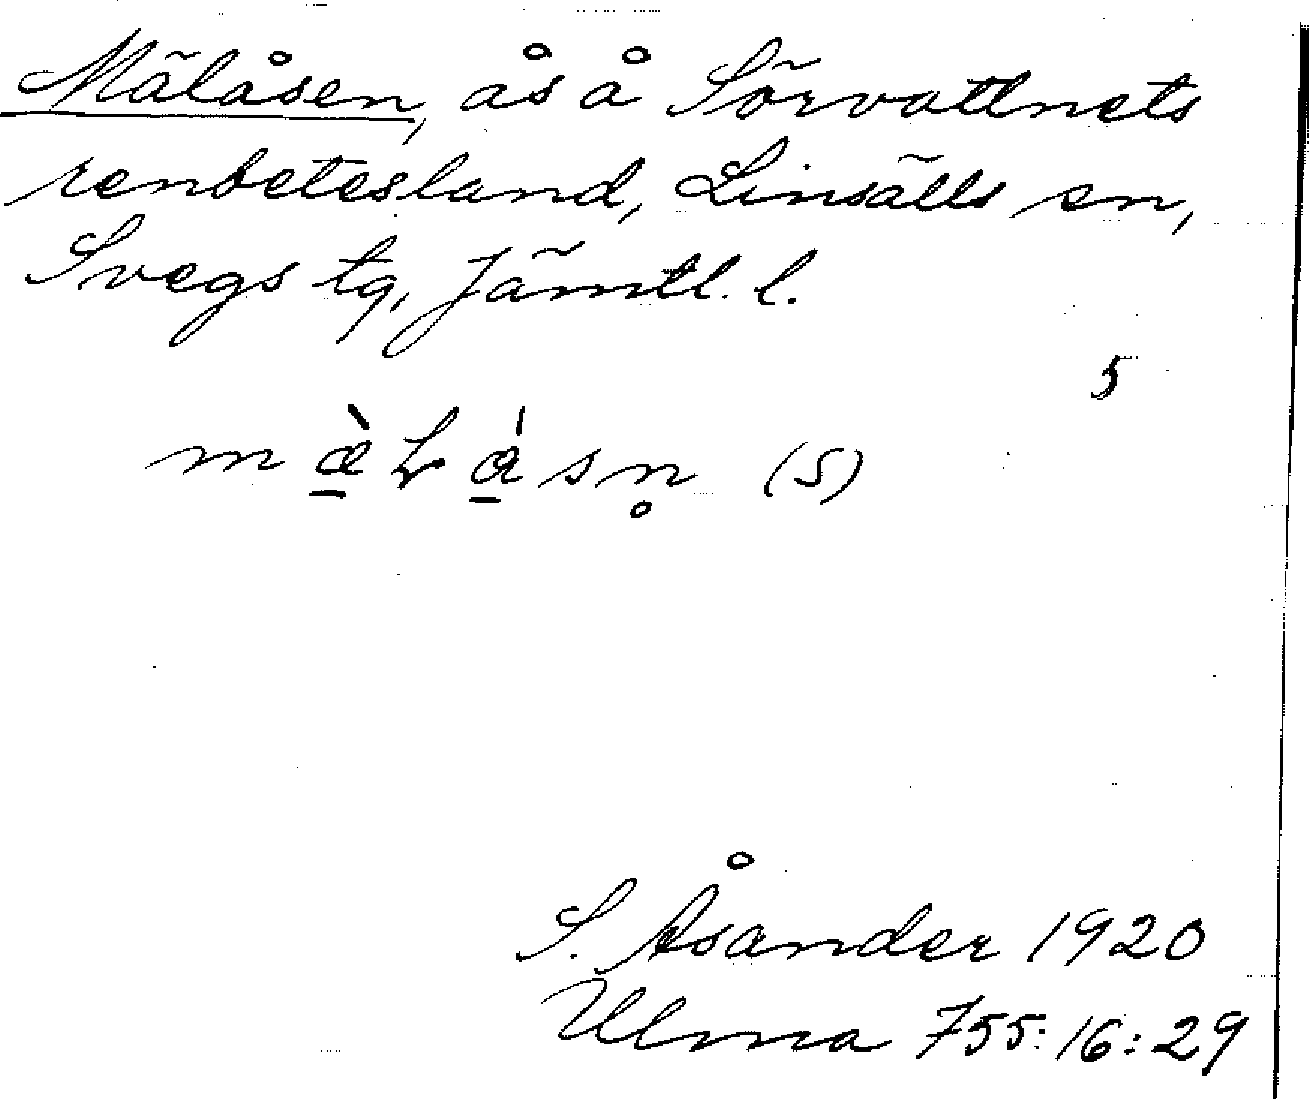 Mälåsen, ås å Sörvattnets
renbetesland, Linsälls sn,
Svegs tg, Jämtl. l.
5
mæ̠̀Lǻ̠sn̥ (S)
S. Åsander 1920
Ulma 755:16:29